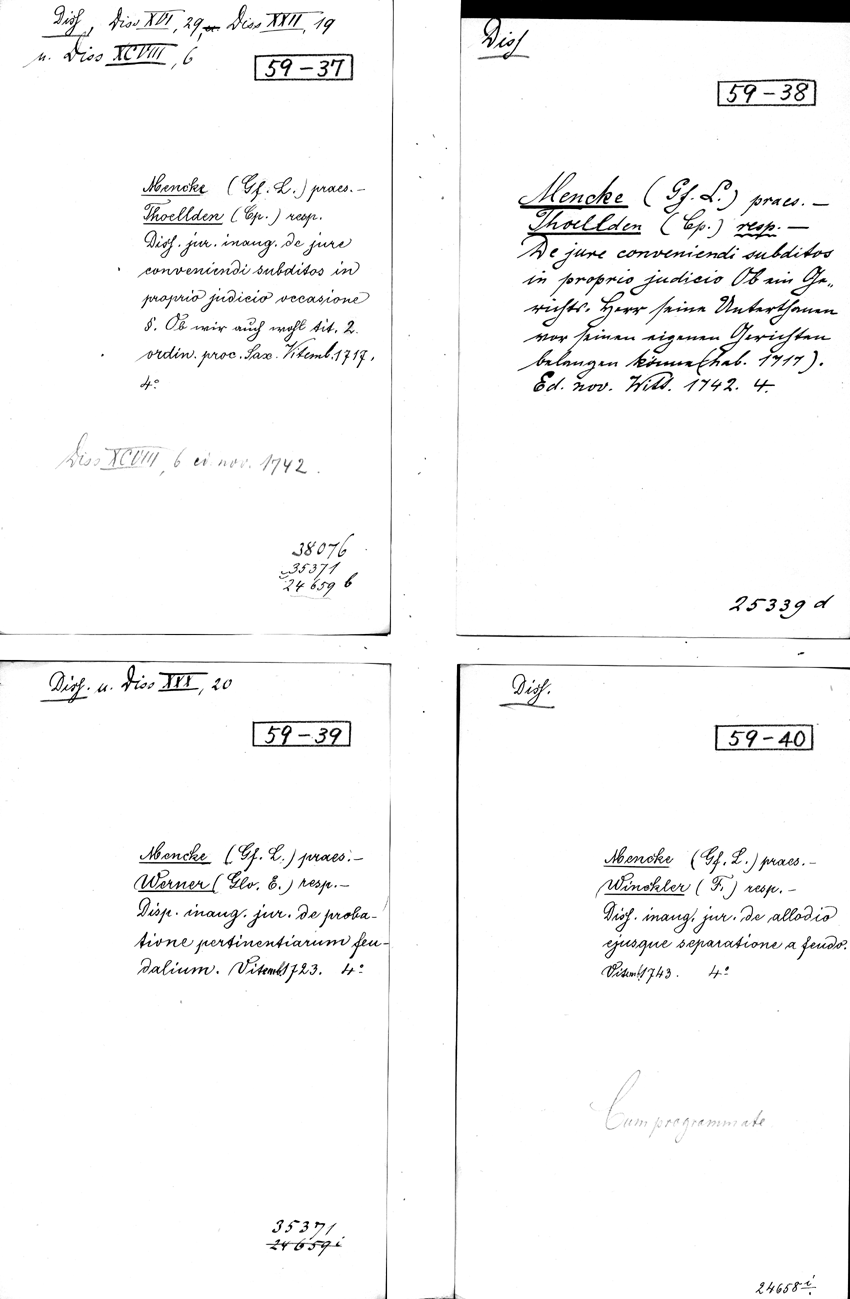 Diss, Diss XVI, 29, Diss XXII, 19
u. Diss XCVIII, 6
59-37
Mencke (Gf. L.) praes. —
Thoellden (Cp.) resp.
Diss. jur. inaug. de jure
conveniendi subditos in
proprio judicio occasione
§. Ob wir auch wohl tit. 2.
ordin. proc. Sax. Vitemb. 1717.
4°
Diss XCVIII, 6 nov. 1742.
38076
35371
24659 b
Diss
59-38
Mencke (Gf. L.) praes. —
Thoellden (Cp.) resp. —
De jure conveniendi subditos
in proprio judicio Ob ein Ge-
richts-Herr seine Unterthanen
vor seinen eigenen Gerichten
belangen könne (hab. 1717).
Ed. nov. Witt. 1742. 4.
25339 d
Diss. u. Diss XXX, 20
59-39
Mencke (Gf. L.) praes. —
Werner (Glo. E.) resp. —
Disp. inaug. jur. de proba-
tione pertinentiarum feu-
dalium. Vitemb. 1723. 4°
35371
24659 i
Diss.
59-40
Mencke (Gf. L.) praes. —
Winckler (F.) resp. —
Diss. inaug. jur. de allodio
ejusque separatione a feudo.
Vitemb. 1743. 4°
Cum programmate
24658 i